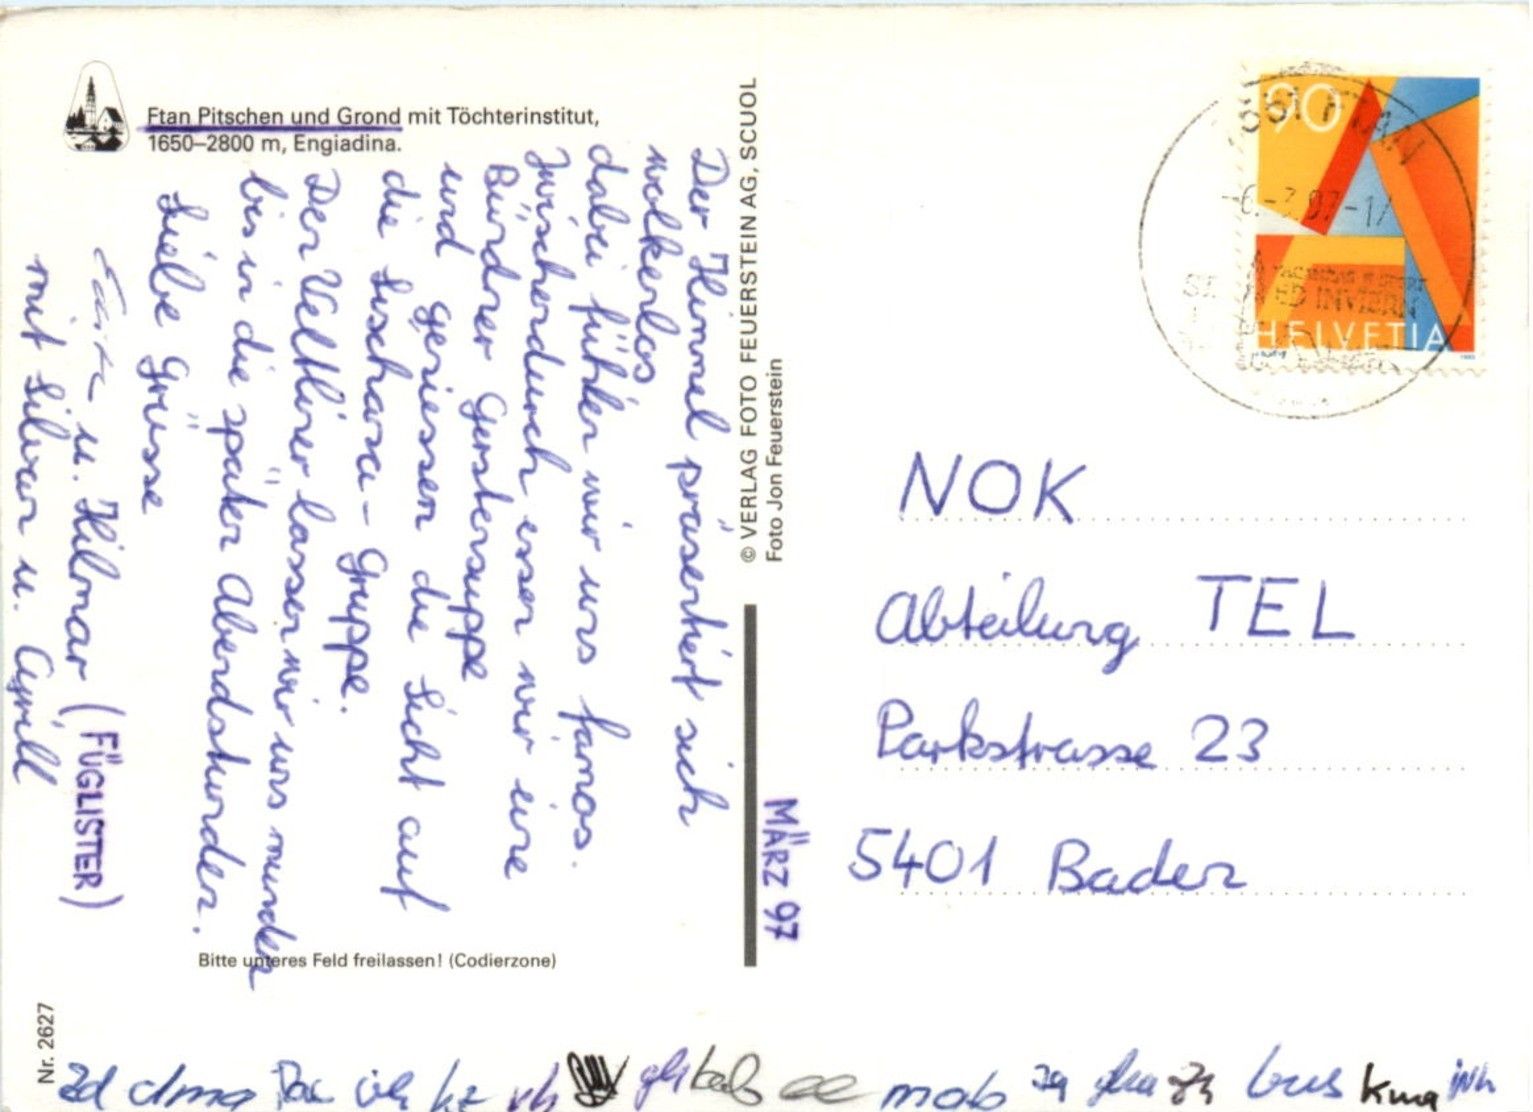 Ftan Pitschen und Grond mit Töchterinstitut,
1650–2800 m, Engiadina.
Der Himmel präsentiert sich
wolkenlos
dabei fühlen wir uns famos.
Zwischendurch essen wir eine
Bündner Gerstensuppe
und geniessen die Sicht auf
die Lischana-Gruppe.
Der Veltliner lassen wir uns munden
bis in die späten Abendstunden.
Liebe Grüsse
u. Hilmar (FÜGLISTER)
mit Silvan u.
Bitte unteres Feld freilassen! (Codierzone)
Nr. 2627
© VERLAG FOTO FEUERSTEIN AG, SCUOL
Foto Jon Feuerstein
MÄRZ 97
90
A
HELVETIA
FTAN
ED INVIERN
NOK
Abteilung TEL
Parkstrasse 23
5401 Baden
zd dma kz rh ee mob bus kma